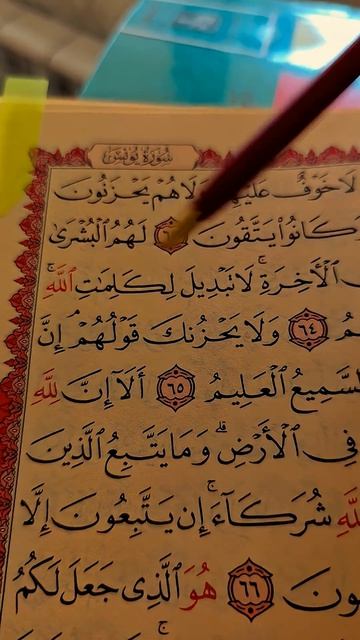 سُورَةُ يُونُسَ
لَا خَوْفٌ عَلَيْهِمْ وَلَا هُمْ يَحْزَنُونَ
كَانُوا۟ يَتَّقُونَ لَهُمُ ٱلْبُشْرَىٰ
ٱلْأَخِرَةِۚ لَا تَبْدِيلَ لِكَلِمَٰتِ ٱللَّهِۚ
٦٤ وَلَا يَحْزُنكَ قَوْلُهُمْۘ إِنَّ
ٱلسَّمِيعُ ٱلْعَلِيمُ ٦٥ أَلَآ إِنَّ لِلَّهِ
فِى ٱلْأَرْضِۗ وَمَا يَتَّبِعُ ٱلَّذِينَ
ٱللَّهِ شُرَكَآءَۚ إِن يَتَّبِعُونَ إِلَّا
٦٦ هُوَ ٱلَّذِى جَعَلَ لَكُمُ